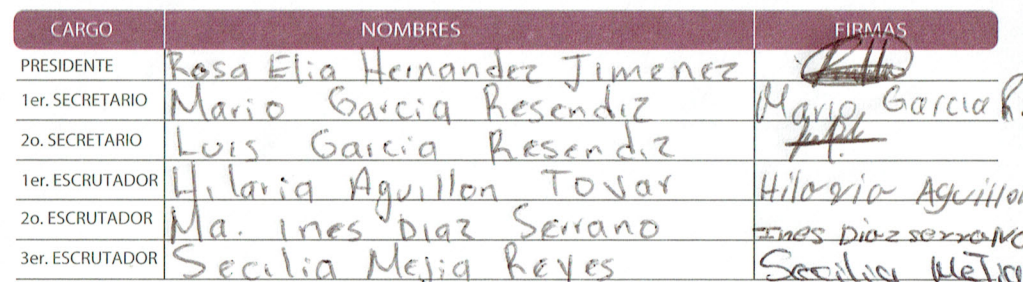 CARGO NOMBRES FIRMAS
PRESIDENTE Rosa Elia Hernandez Jimenez
1er. SECRETARIO Mario Garcia Resendiz Mario Garcia R.
2o. SECRETARIO Luis Garcia Resendiz
1er. ESCRUTADOR Hilaria Aguillon Tovar Hilaria Aguillon
2o. ESCRUTADOR Ma. Ines Diaz Serrano Ines Diaz serrano
3er. ESCRUTADOR Secilia Mejia Reyes Secilia Mejia